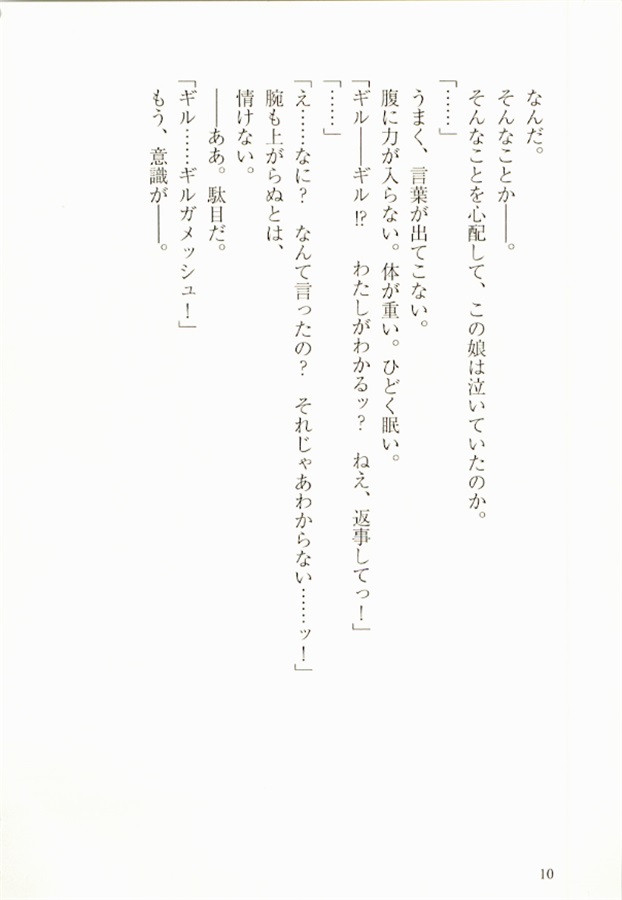 なんだ。
そんなことか――。
そんなことを心配して、この娘は泣いていたのか。
「……」
うまく、言葉が出てこない。
腹に力が入らない。体が重い。ひどく眠い。
「ギル――ギル!?　わたしがわかるッ?　ねえ、返事してっ!」
「……」
「え……なに?　なんて言ったの?　それじゃあわからない……ッ!」
腕も上がらぬとは、
情けない。
――ああ。駄目だ。
「ギル……ギルガメッシュ!」
もう、意識が――。
10